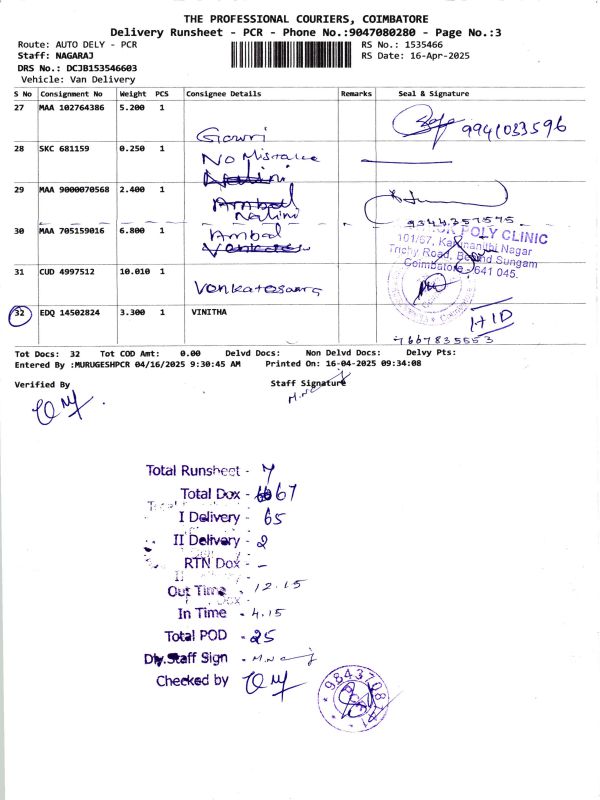 THE PROFESSIONAL COURIERS, COIMBATORE
Delivery Runsheet - PCR - Phone No.:9047080280 - Page No.:3
Route: AUTO DELY - PCR RS No.: 1535466
Staff: NAGARAJ RS Date: 16-Apr-2025
DRS No.: DCJB153546603
Vehicle: Van Delivery
S No Consignment No Weight PCS Consignee Details Remarks Seal & Signature
27 MAA 102764386 5.200 1 Gowri 9941033596
28 SKC 681159 0.250 1 No Mistake
Nalini
29 MAA 9000070568 2.400 1 Ambal
Nalini
9344357575
30 MAA 705159016 6.800 1 Ambal
POLY CLINIC
101/67, Nagar
Trichy Road, Behind Sungam
Coimbatore - 641 045.
31 CUD 4997512 10.010 1
32 EDQ 14502824 3.300 1 VINITHA
7667835553
Tot Docs: 32 Tot COD Amt: 0.00 Delvd Docs: Non Delvd Docs: Delvy Pts:
Entered By :MURUGESHPCR 04/16/2025 9:30:45 AM Printed On: 16-04-2025 09:34:08
Verified By Staff Signature
Total Runsheet - 7
Total Dox - 67
I Delivery - 65
II Delivery - 2
RTN Dox - -
Out Time - 12.15
In Time - 4.15
Total POD - 25
Dly.Staff Sign -
Checked by